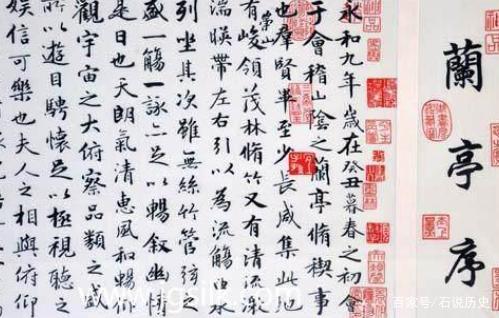 蘭亭序
永和九年歲在癸丑暮春之初會
于會稽山陰之蘭亭脩稧事
也羣賢畢至少長咸集此地
有崇山峻領茂林脩竹又有清流激
湍暎帶左右引以為流觴曲水
列坐其次雖無絲竹管弦之
盛一觴一詠亦足以暢叙幽情
是日也天朗氣清惠風和暢仰
觀宇宙之大俯察品類之盛
所以遊目騁懷足以極視聽之
娛信可樂也夫人之相與俯仰
百家号/石说历史